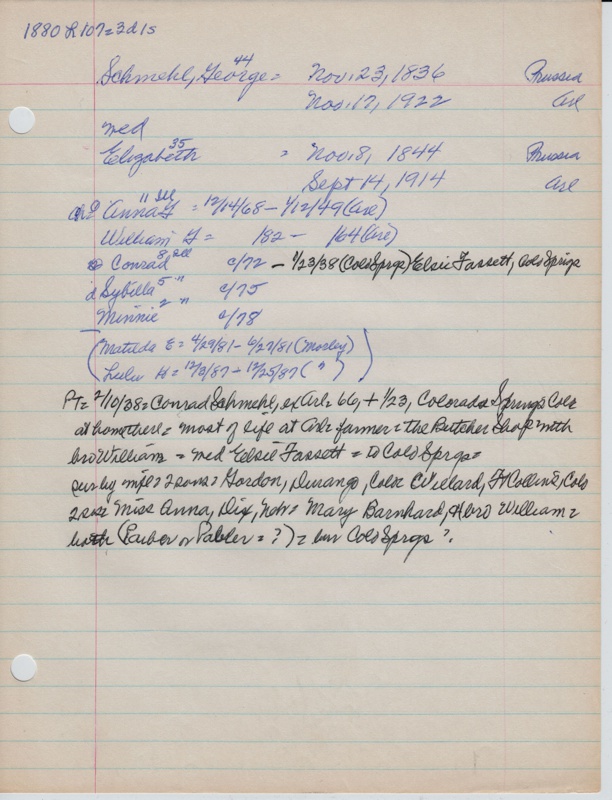 1880 R107=3d1s
44
Schmehl, George = Nov. 23, 1836 Prussia
Nov. 17, 1922 Arl
med
35
Elizabeth = Nov. 8, 1844 Prussia
Sept 14, 1914 Arl
11 Ill
Anna = 12/14/68 - 1/12/49 (Arl)
William = /82 - /64 (Arl)
8 Ill
Conrad c/72 - 1/23/38 (Colo Sprgs) Elsie Fassett, Colo Sprgs
d Sybilla 5 " c/75
Minnie 2 " c/78
(Matilda E = 4/29/81 - 6/27/81 (Morley)
Lulu H = 12/3/87 - 12/25/87 ( " ) )
Pt = 2/10/38 = Conrad Schmehl, ex Arl = 66, + 1/23, Colorado Springs Colo
at home there = most of life at Arl = farmer = the Butcher Shop with
bro William = med Elsie Fassett = to Colo Sprgs =
sur by wife = 2 sons = Gordon, Durango, Colo Willard, Ft Collins, Colo
2 sis Miss Anna, Dix, Nebr = Mary Barnhard, bro William =
both ( = ?) = bur Colo Sprgs ?.